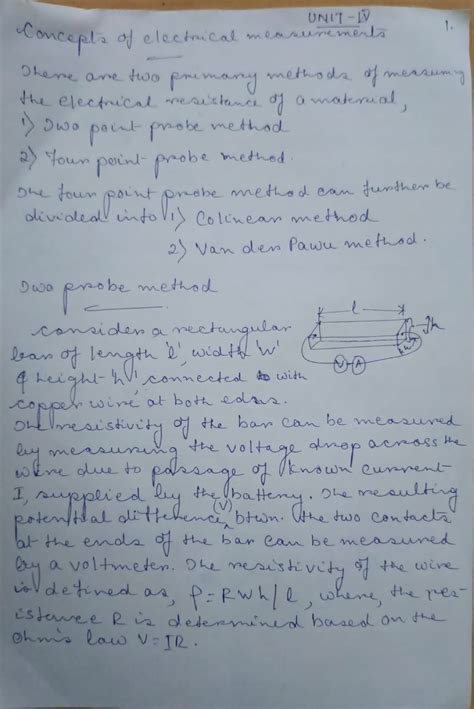 UNIT-IV
1.
Concepts of electrical measurements
There are two primary methods of measuring
the electrical resistance of a material,
1) Two point probe method
2) Four point probe method.
The four point probe method can further be
divided into 1) Colinear method
2) Van der Pawu method.
Two probe method
l
h
w
V A
Consider a rectangular
bar of length 'l', width 'W'
& height 'h', connected with
copper wire, at both ends.
The resistivity of the bar can be measured
by measuring the voltage drop across the
wire due to passage of known current
I, supplied by the battery. The resulting
potential difference (V) btwn. the two contacts
at the ends of the bar can be measured
by a voltmeter. The resistivity of the wire
is defined as, ρ = RWh/l, where, the res-
istance R is determined based on the
Ohm's law V=IR.